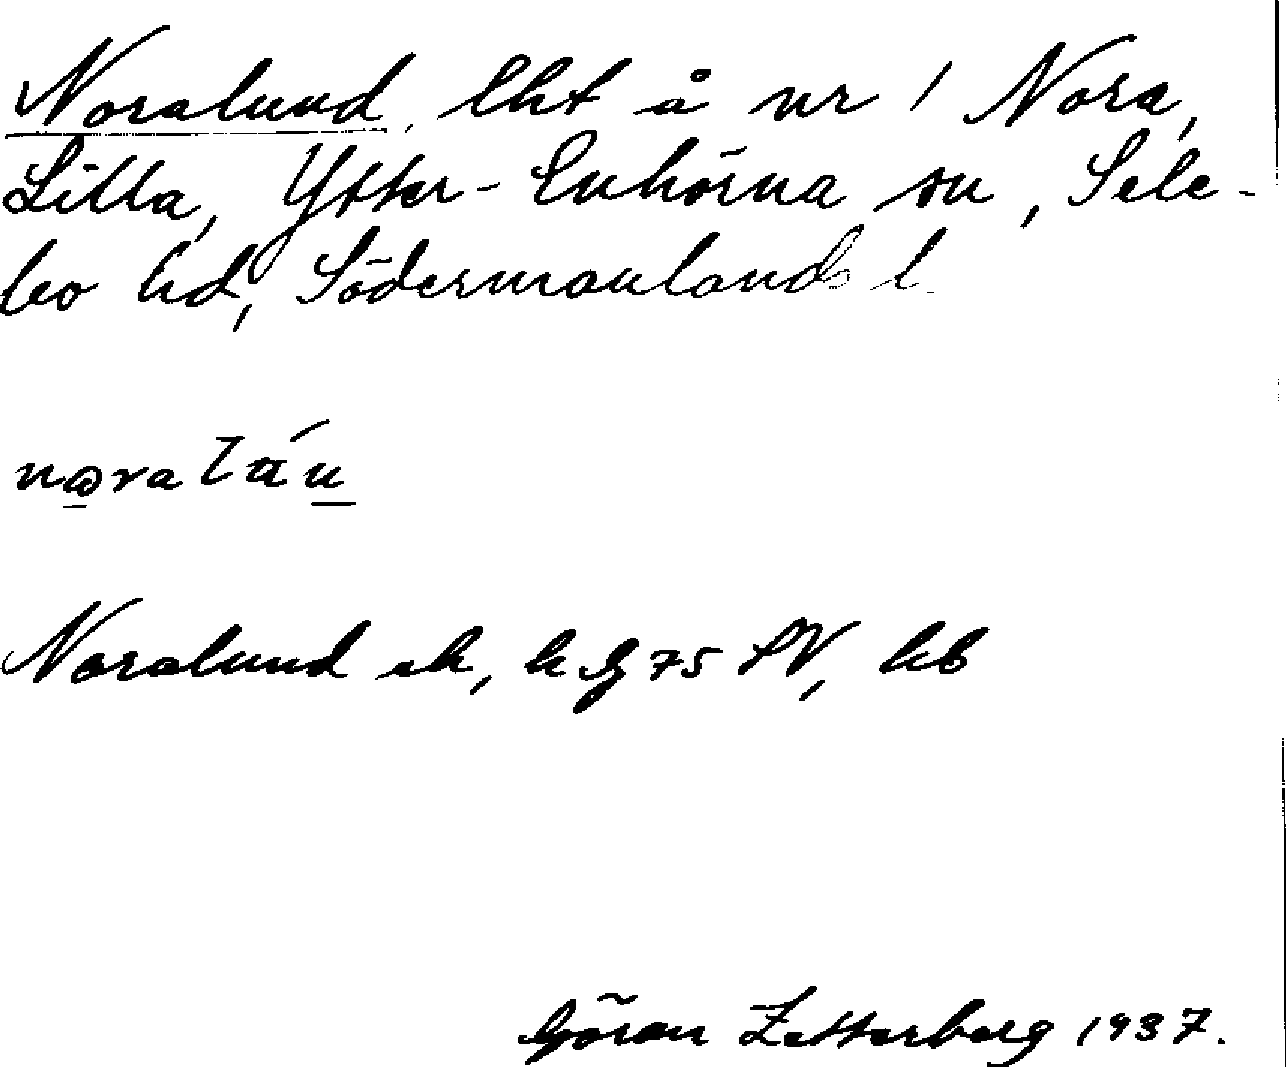 Noralund, lht å nr 1 Nora,
Lilla, Ytter-Enhörna sn, Sele-
bo hd, Södermanlands l.
Noralund ek, h 75 SV, hb
Göran Zetterberg 1937.